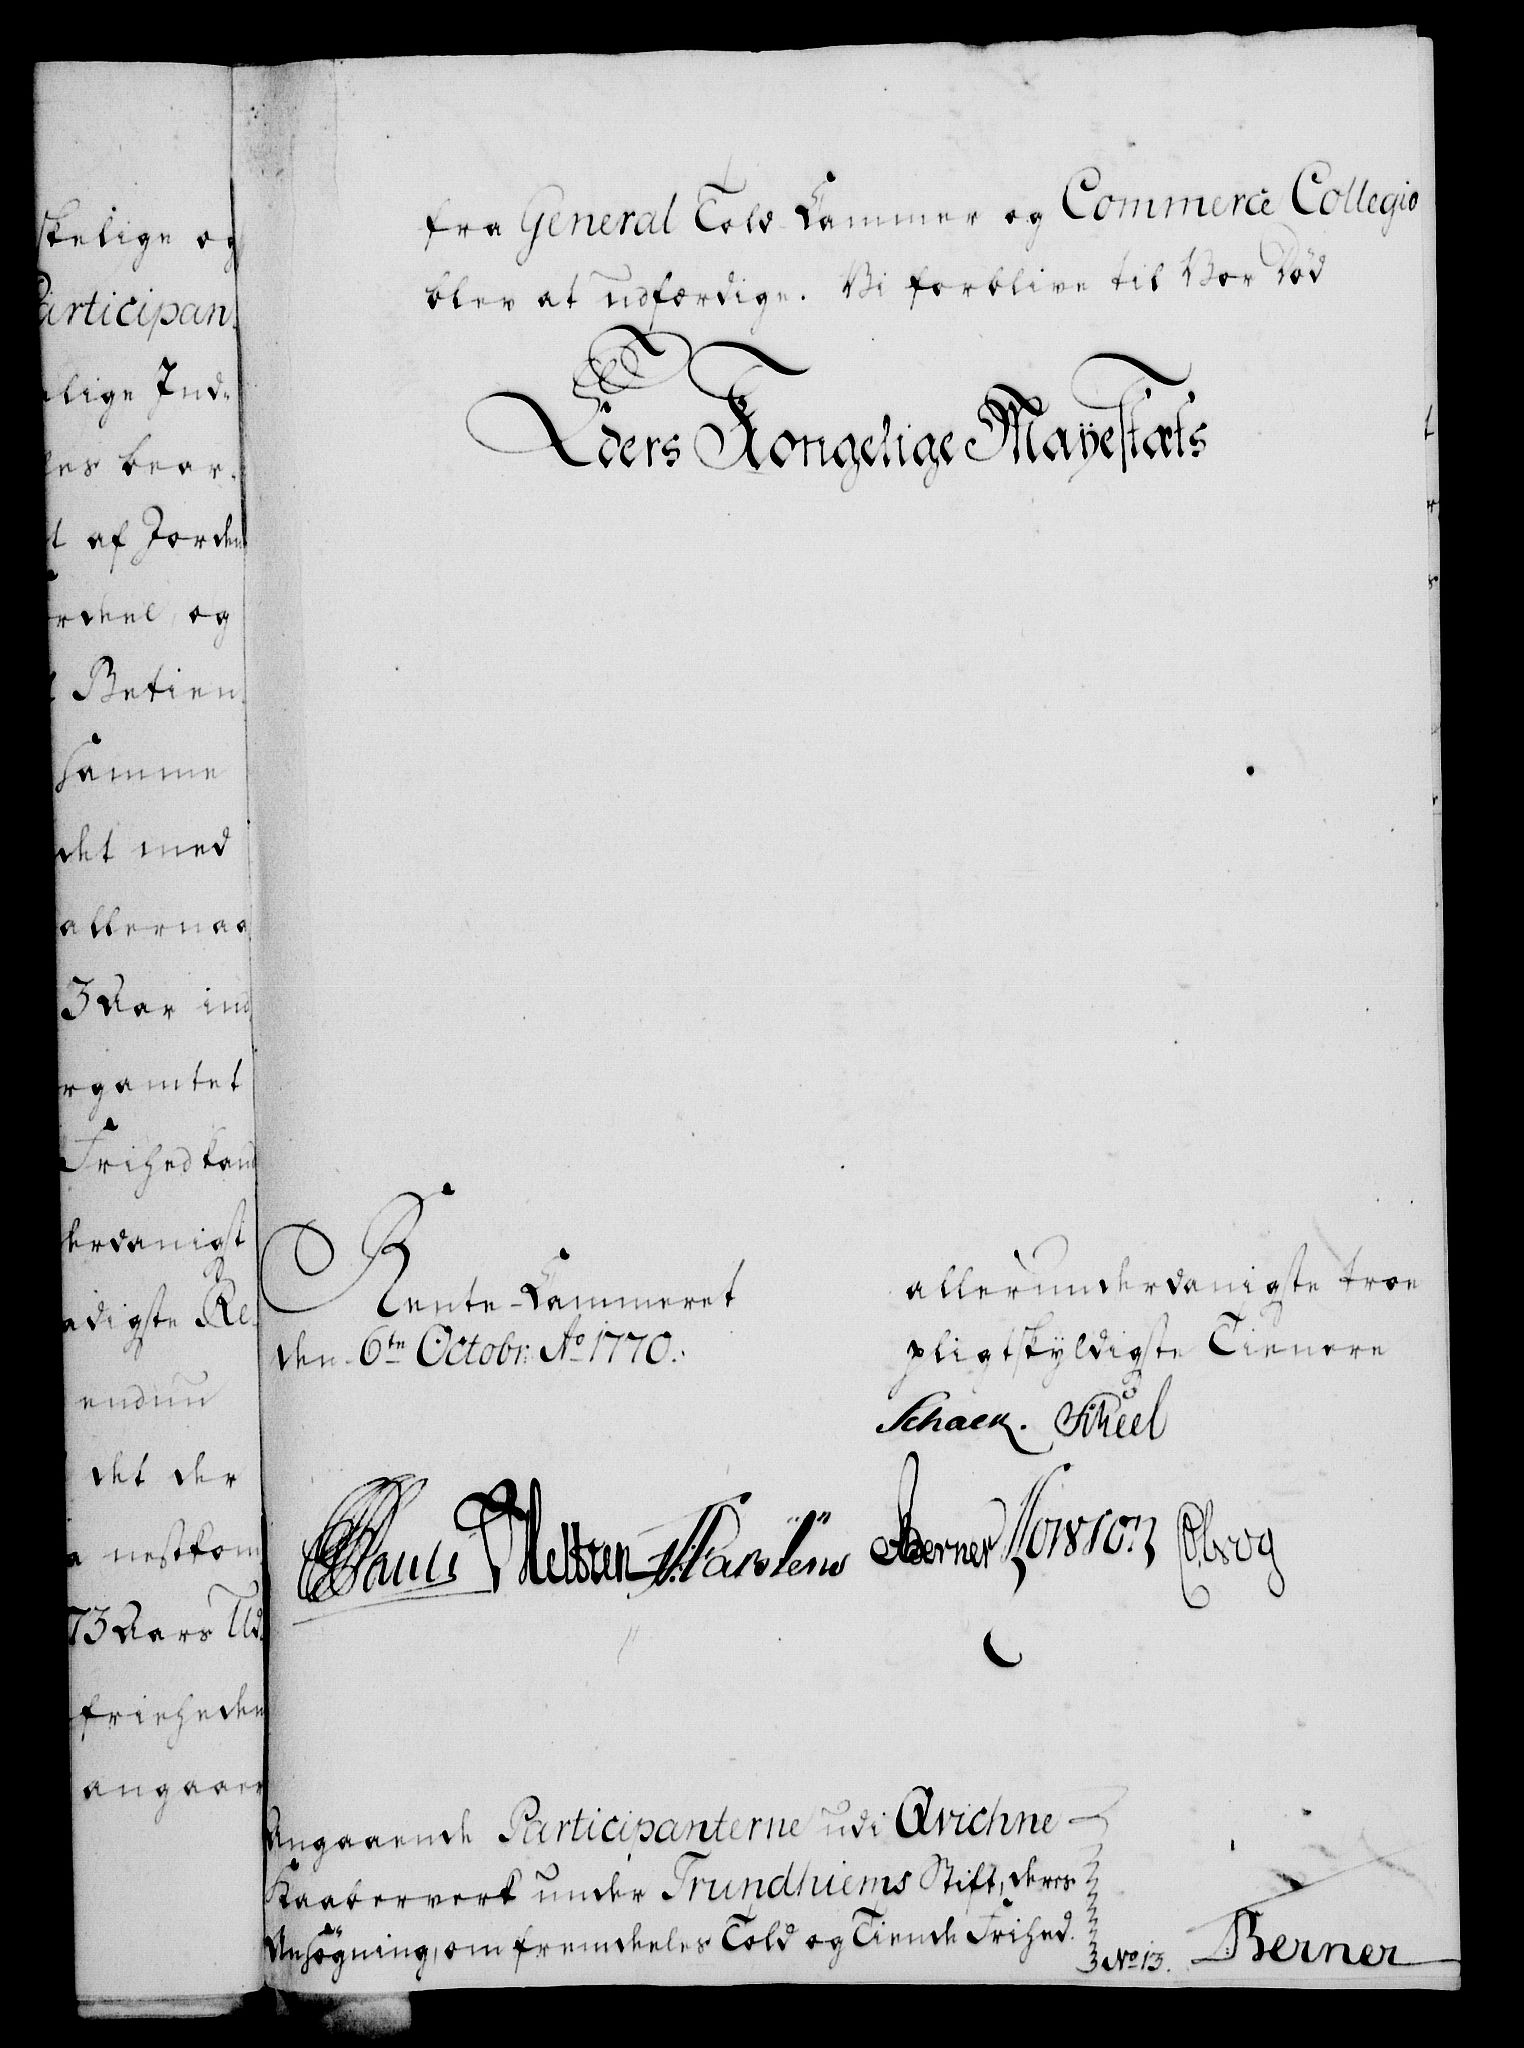 skelige og
Participan-
lige Ind-
les bear-
t af Jorden
rdeel, og
Betien-
samme
det med
allernaa
3 Aar ind
rgamtet
Frihed kand
derdanigst
adigste Re-
endnu
det der
nestkom
73 Aars Ud-
frieheden
angaaen
fra General Told-Kammer og Commerce Collegio
blev at udfærdige. Vi forblive til Vor Död
Eders Kongelige Mayestæts
Rente-Kammeret
den 6te Octobr: Ao 1770.
allerunderdanigste troe
pligtskyldigste Tienere
Schack. Scheel
Pauli Meltzen Karstens Berner Lowson Obrog
Angaaende Participanterne udi Qvichne
Kaaberverk under Trundhiems Stift, deres
Ansögning, om fremdeeles Told og Tiende Frihed.
No 13.
Berner